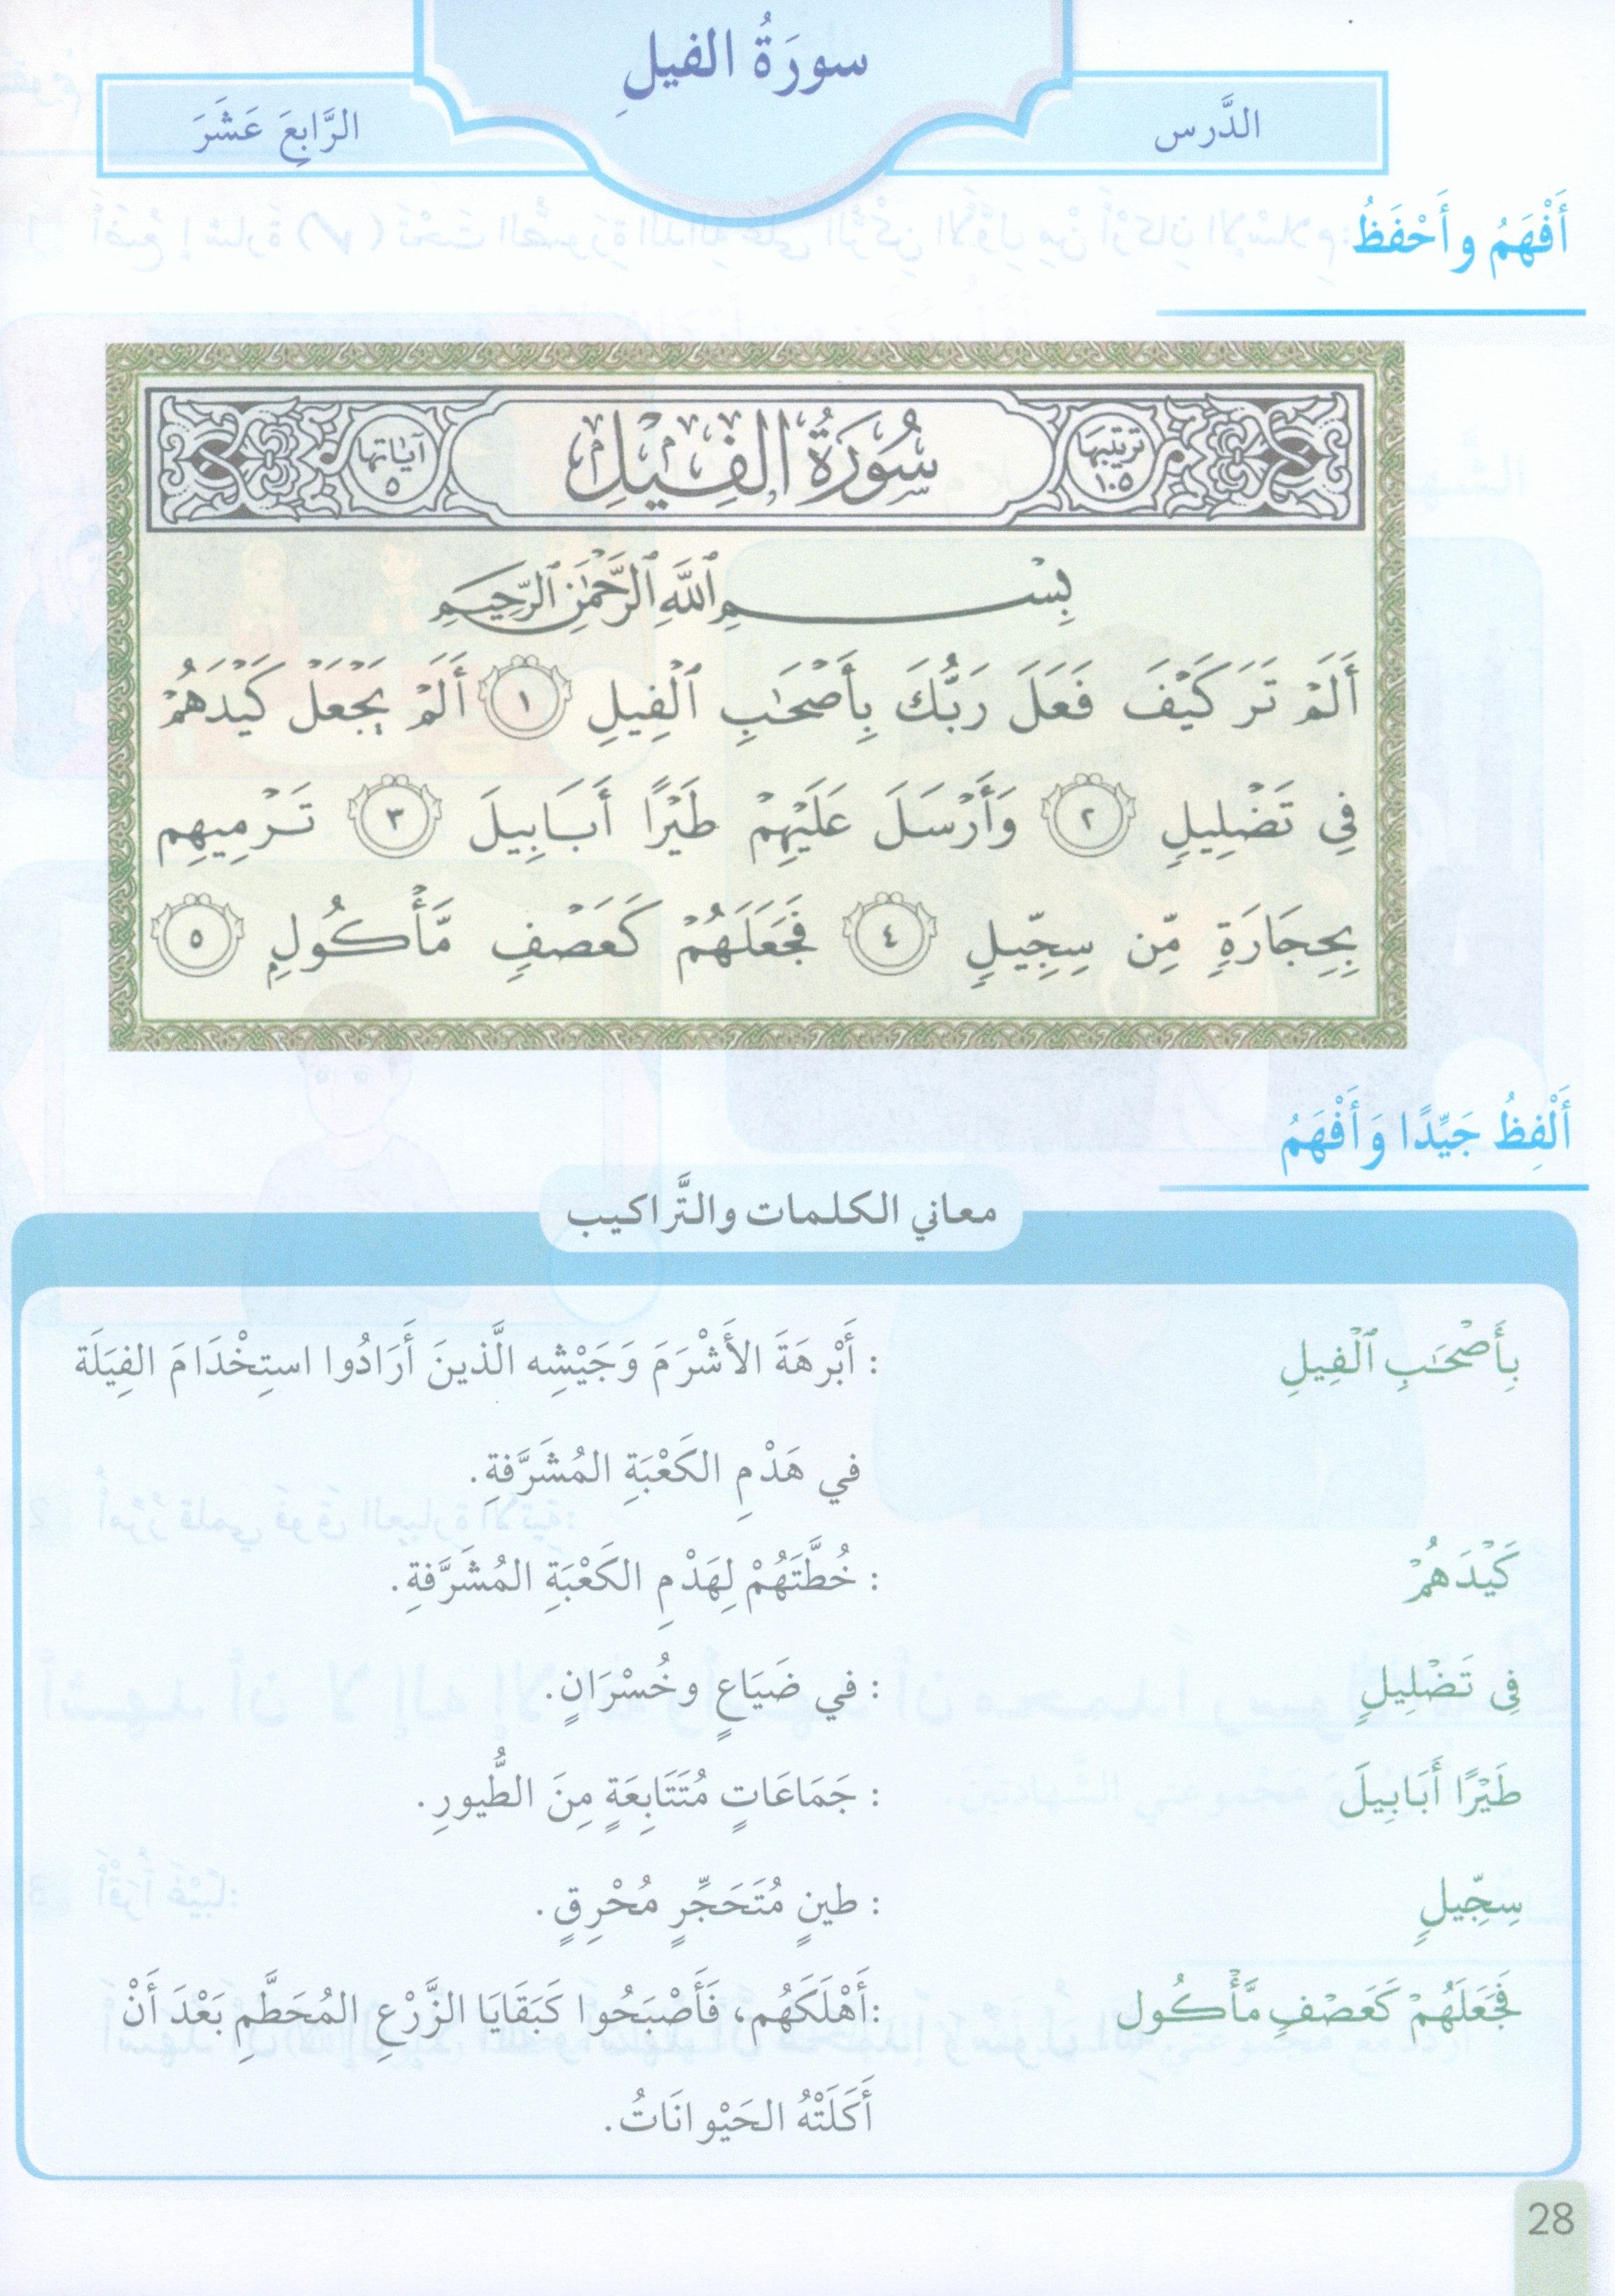 سورَةُ الفيلِ
الدَّرس
الرَّابِعَ عَشَرَ
أَفْهَمُ وأَحْفَظُ
سُورَةُ الفِيلِ
ترتيبها ١٠٥
آياتها ٥
بِسْمِ ٱللَّهِ ٱلرَّحْمَٰنِ ٱلرَّحِيمِ
أَلَمْ تَرَ كَيْفَ فَعَلَ رَبُّكَ بِأَصْحَٰبِ ٱلْفِيلِ ١ أَلَمْ يَجْعَلْ كَيْدَهُمْ
فِى تَضْلِيلٍ ٢ وَأَرْسَلَ عَلَيْهِمْ طَيْرًا أَبَابِيلَ ٣ تَرْمِيهِم
بِحِجَارَةٍ مِّن سِجِّيلٍ ٤ فَجَعَلَهُمْ كَعَصْفٍ مَّأْكُولٍ ٥
أَلْفِظُ جَيِّدًا وَأَفْهَمُ
معاني الكلمات والتَّراكيب
بِأَصْحَٰبِ ٱلْفِيلِ : أَبْرهَةَ الأَشْرَمَ وَجَيْشِه الَّذينَ أَرَادُوا استِخْدَامَ الفِيَلَة
في هَدْمِ الكَعْبَةِ المُشَرَّفةِ.
كَيْدَهُمْ : خُطَّتَهُمْ لِهَدْمِ الكَعْبَةِ المُشَرَّفةِ.
فِى تَضْلِيلٍ : في ضَيَاعٍ وخُسْرَانٍ.
طَيْرًا أَبَابِيلَ : جَمَاعَاتٍ مُتَتَابِعَةٍ مِنَ الطُّيورِ.
سِجِّيلٍ : طينٍ مُتَحَجِّرٍ مُحْرِقٍ.
فَجَعَلَهُمْ كَعَصْفٍ مَّأْكُول :أَهْلَكَهُم، فَأَصْبَحُوا كَبَقَايَا الزَّرْعِ المُحَطَّمِ بَعْدَ أَنْ
أَكَلَتْهُ الحَيْوانَاتُ.
28